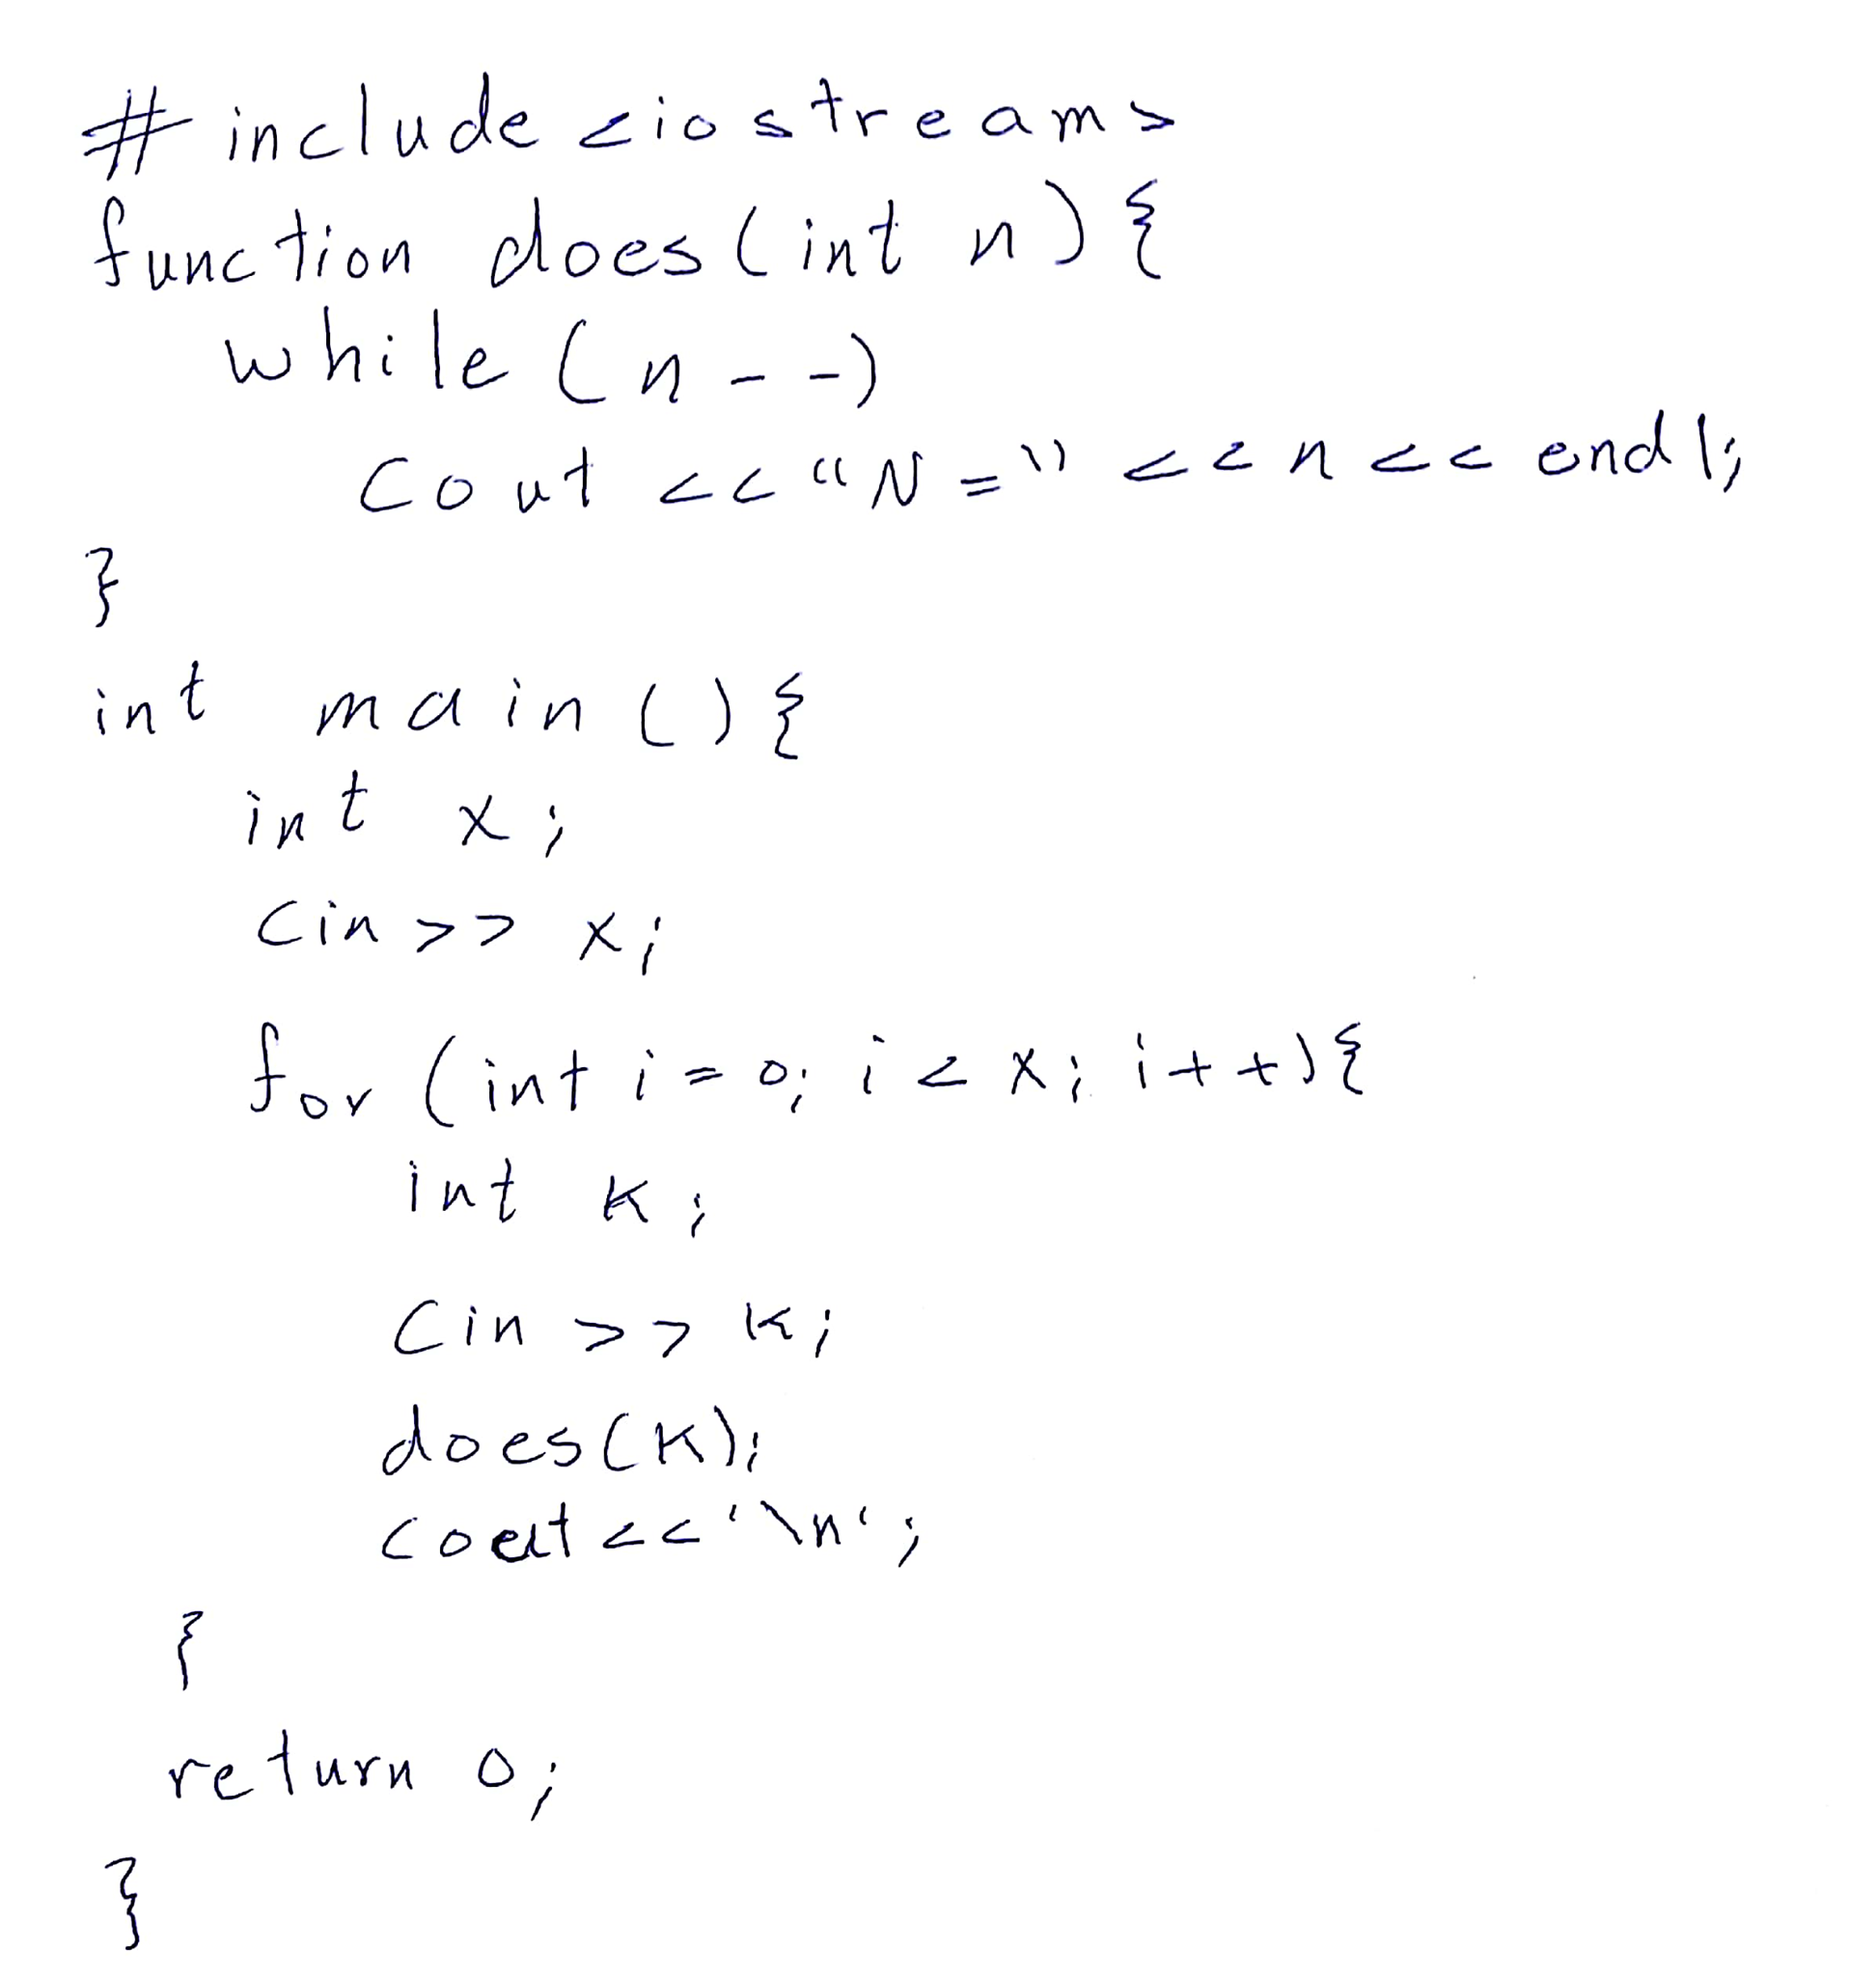 # include <iostream>
function does(int n){
while(n--)
cout << “N=” << n << endl;
}
int main(){
int x;
cin >> x;
for(int i=0; i < x; i++){
int k;
cin >> k;
does(k);
cout<<'\n';
}
return 0;
}